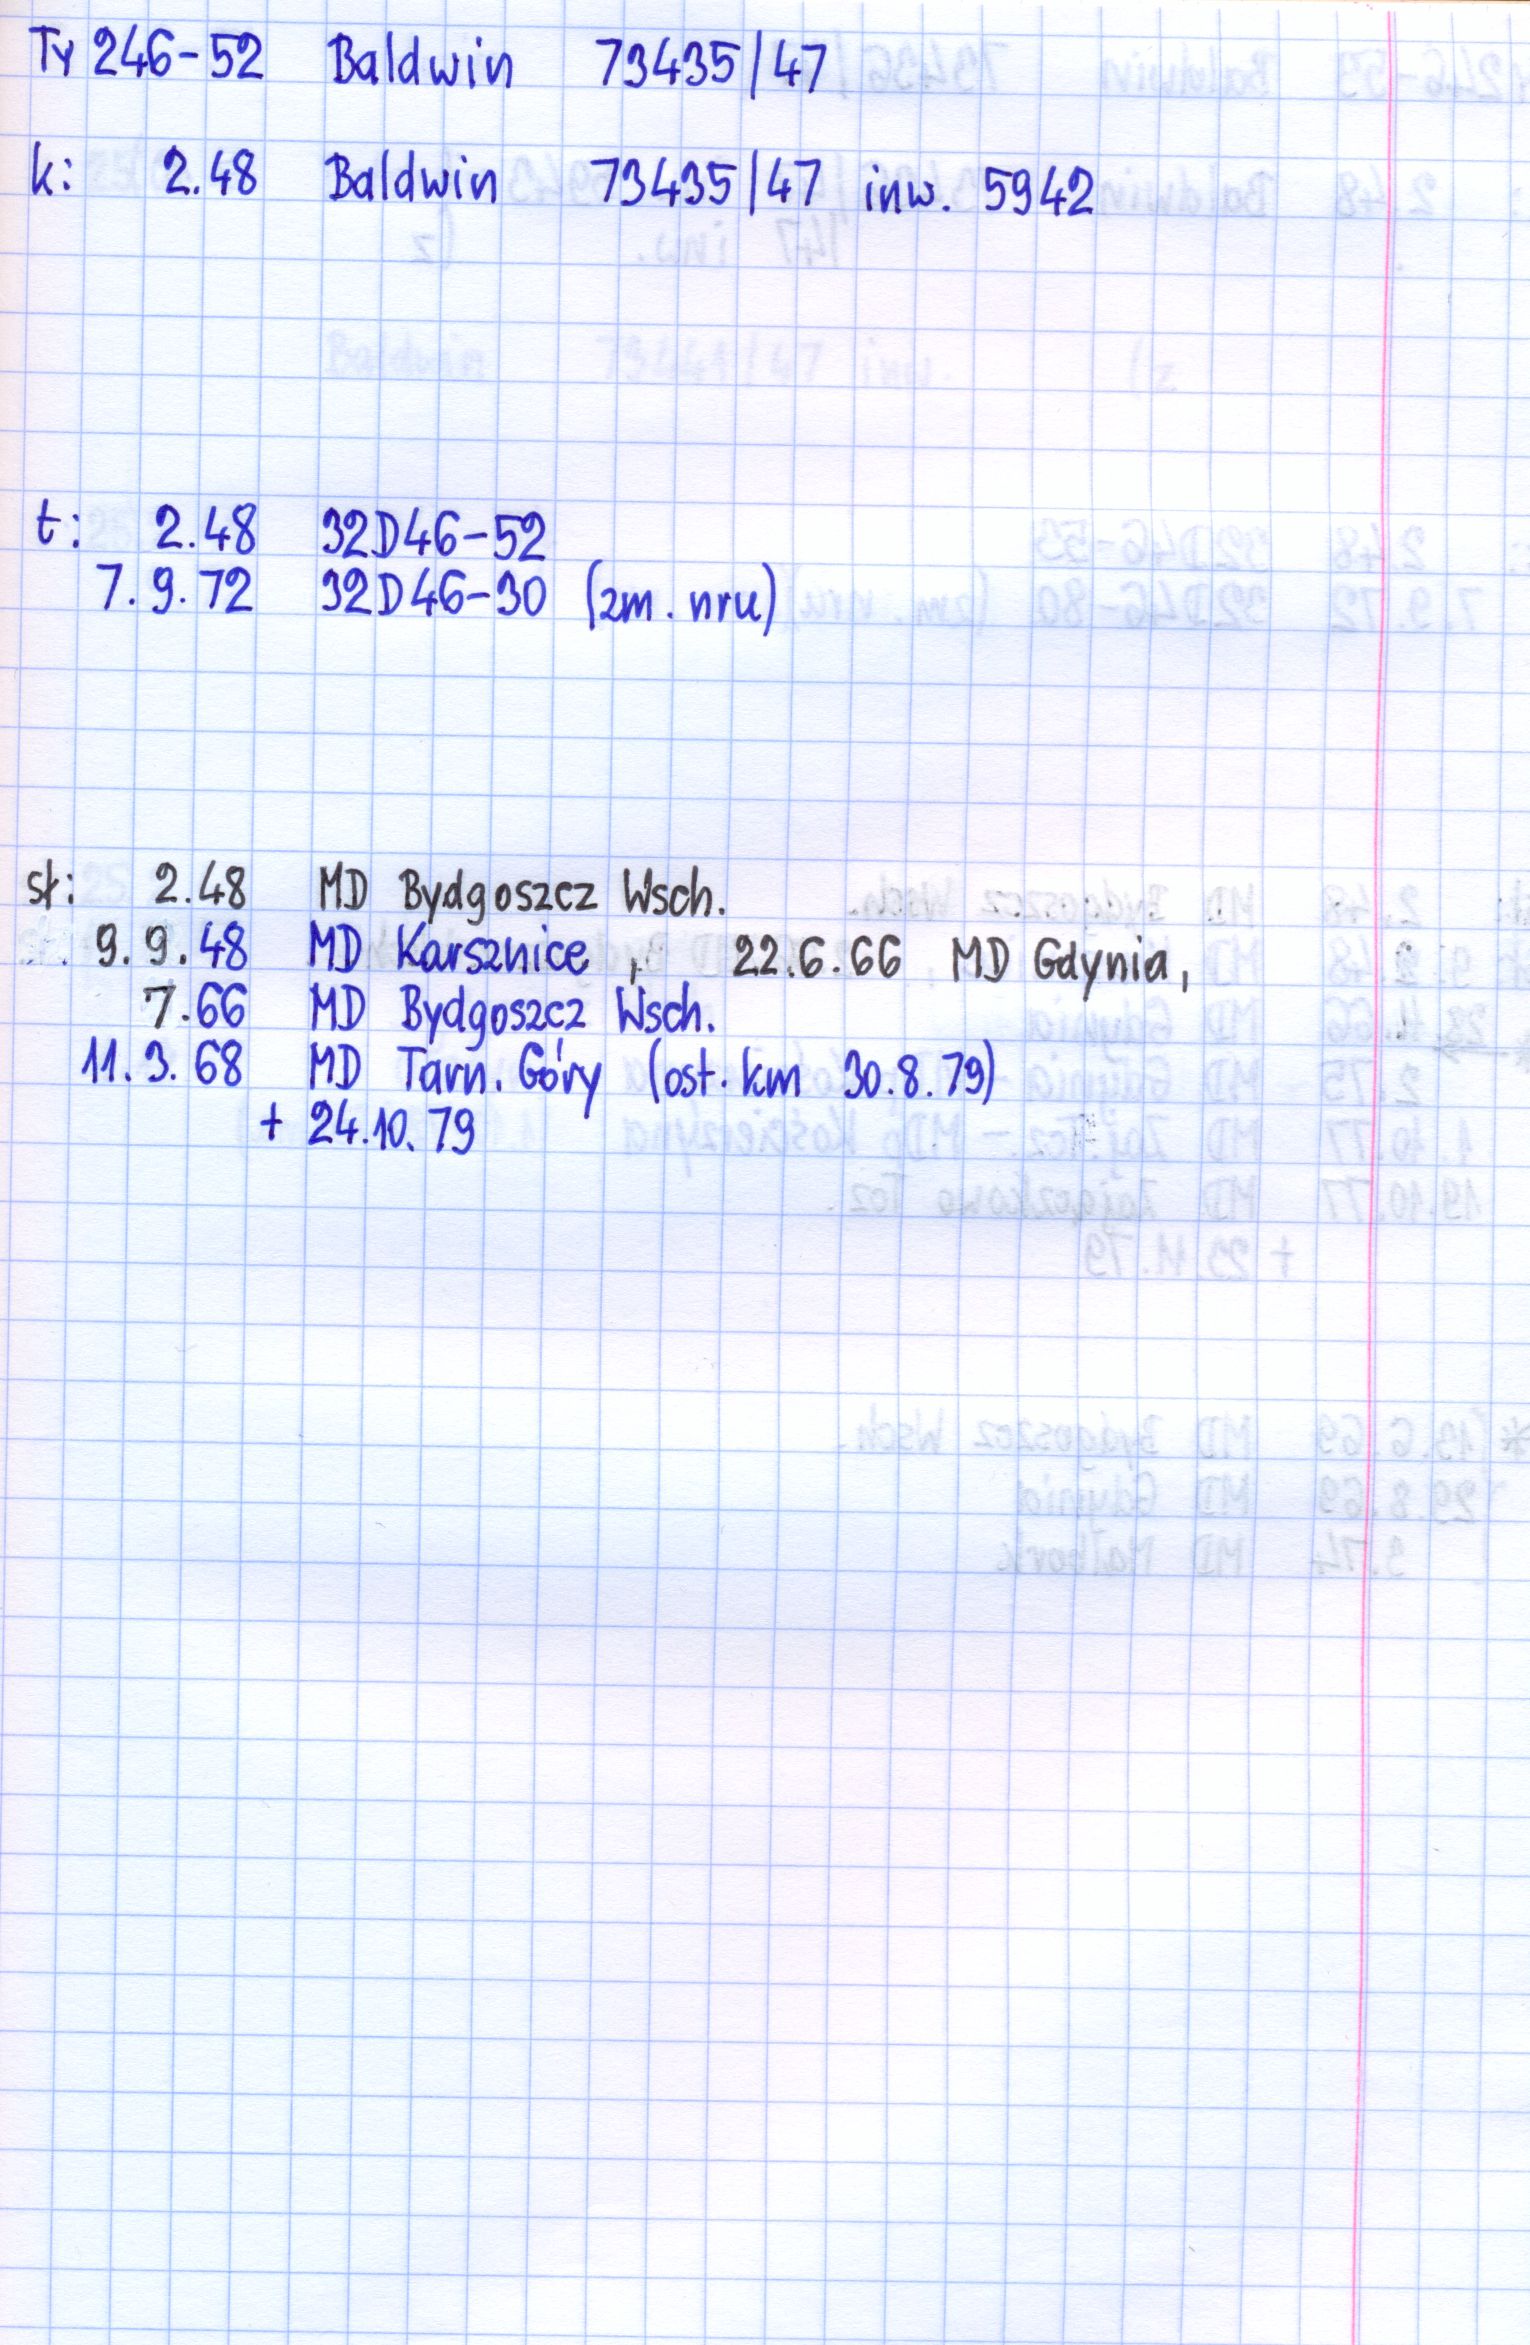 Ty 246-52 Baldwin 73435/47
k: 2.48 Baldwin 73435/47 inw. 5942
t: 2.48 32D46-52
7.9.72 32D46-30 (zm. nru)
st: 2.48 MD Bydgoszcz Wsch.
9.9.48 MD Karsznice, 22.6.66 MD Gdynia,
7.66 MD Bydgoszcz Wsch.
11.3.68 MD Tarn. Góry (ost. km 30.8.79)
+ 24.10.79